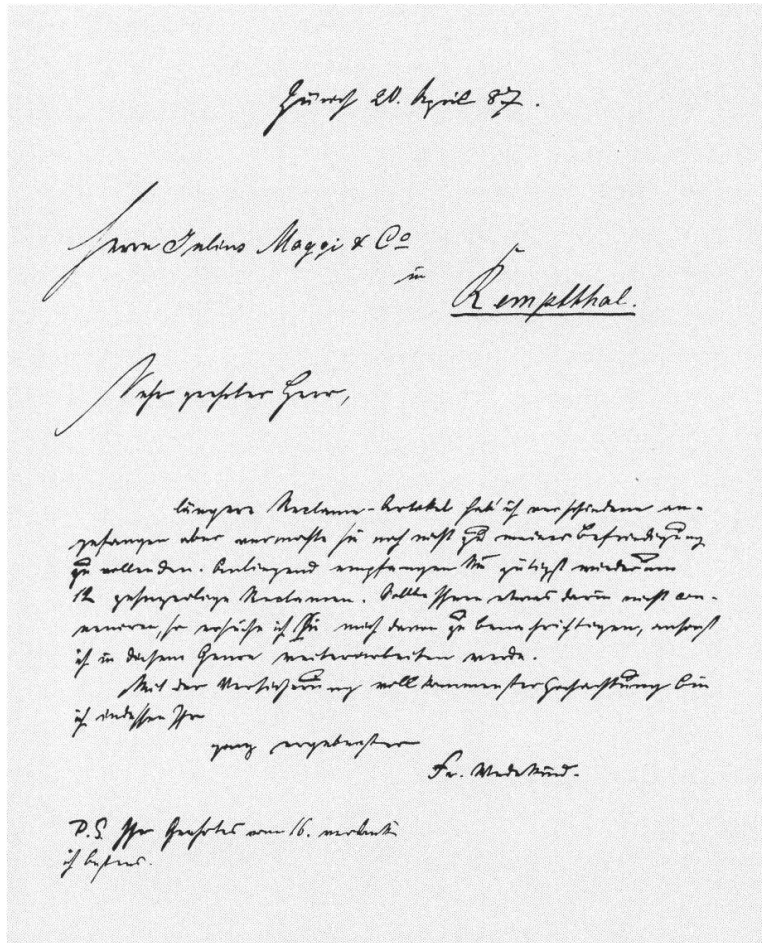 Zürich 20. April 87.
Herrn Julius Maggi & Co
in
Kemptthal.
Sehr geehrter Herr,
längere Reclame-Artikel hab' ich verschiedene an-
gefangen aber vermochte sie noch nicht zu meiner Befriedigung
zu vollenden. Anliegend empfangen Sie gütigst wiederum
12 Reclamen. Sollte Ihnen etwas darin nicht con-
veniren, so ersuche ich Sie mich davon zu benachrichtigen, ansonst
ich in diesem Genre weiterarbeiten werde.
Mit der Versicherung vollkommenster Hochachtung bin
ich indessen Ihr
ganz ergebenster
Fr. Wedekind.
P.S. Ihr Geehrtes vom 16. verdank
ich bestens.